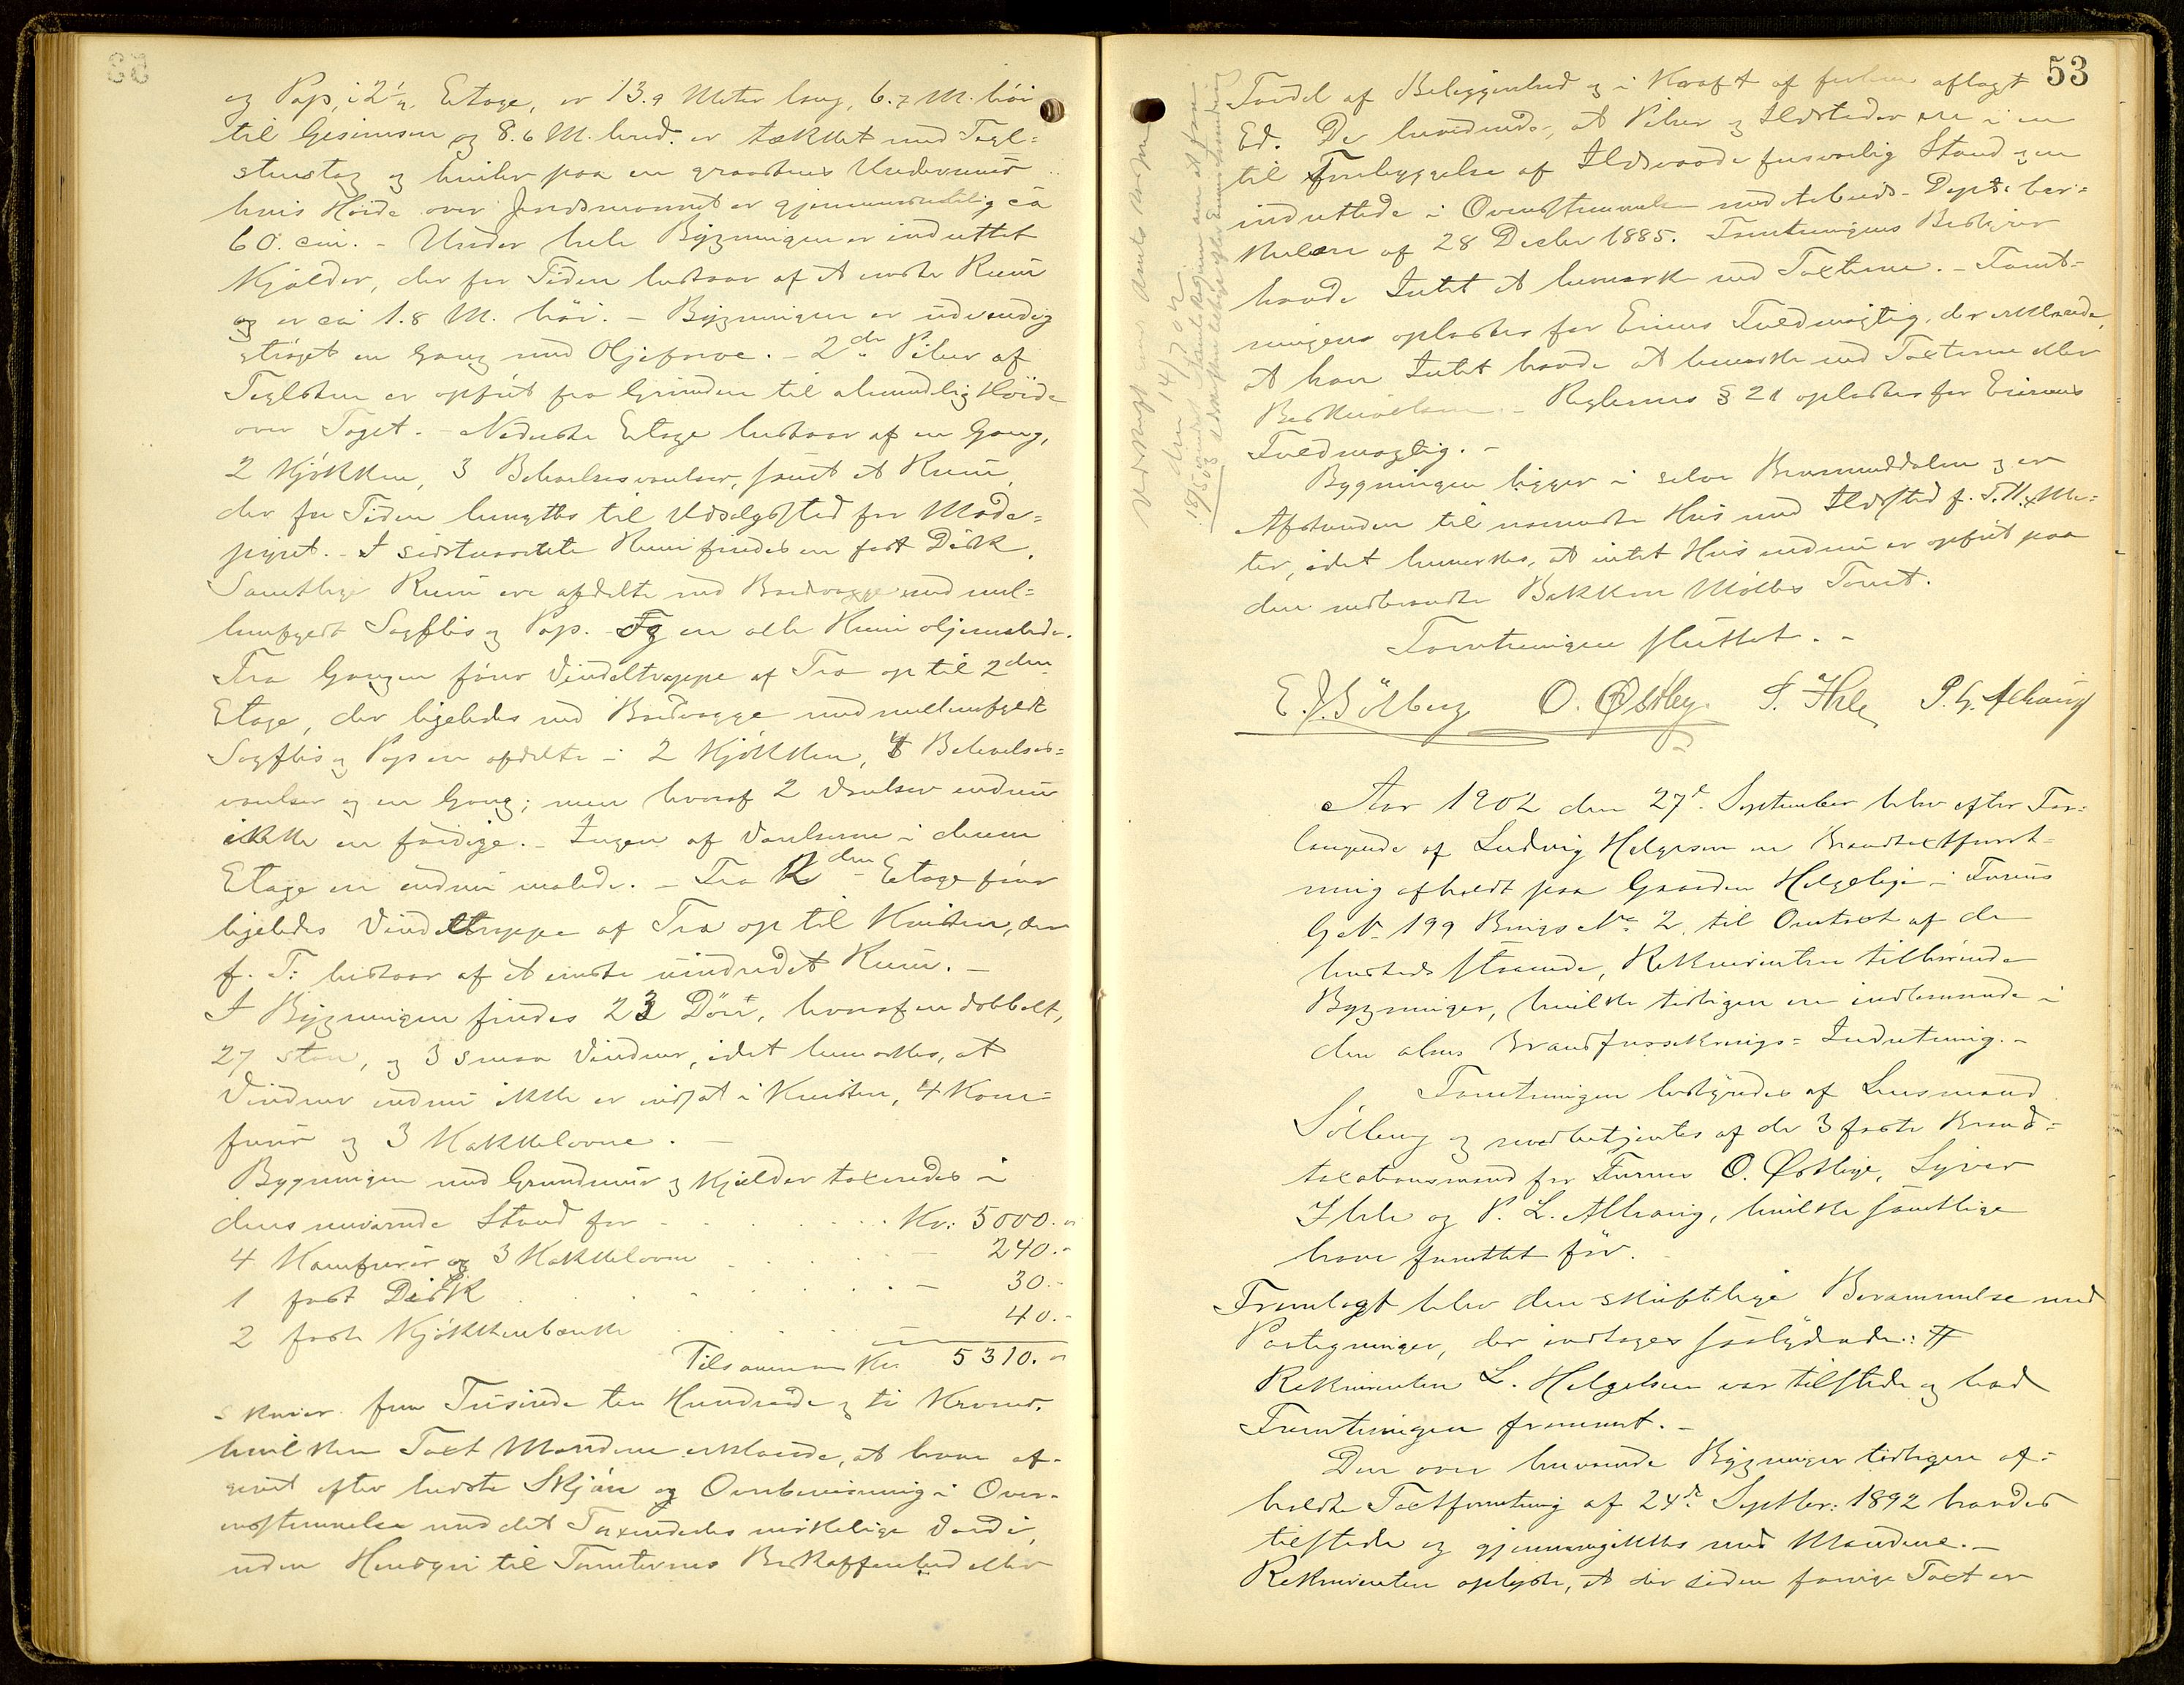 og Pap, i 2 1/2 Etage, er 13.9 Meter lang, 6.7 M. høi
til Gesimsen og 8.6 M. bred. er tækket med Tegl=
stenstag og hviler paa en graastens Undermur
hvis Høide over Jordsmonnet er gjennemsnitlig ca
60. cm. - Under hele Bygningen er indrettet
Kjælder, der for Tiden bestaar af et eneste Rum
og er ca 1.8 M. høi. - Bygningen er udvendig
strøget en Gang med Oljefarve. - 2de Piber af
Teglsten er opført fra Grunden til almindelig Høide
over Taget. - Nederste Etage bestaar af en Gang,
2 Kjøkken, 3 Beboelsesværelser, samt et Rum,
der for Tiden benyttes til Udsalgssted for Mode=
pynt. - I sidstnævnte Rum findes en fast Disk.
Samtlige Rum ere afdelte med Bordvægge med mel=
lemfyldt Sagflis og Pap. - Og ere alle Rum oljemalede.
Fra Gangen fører Vindeltrappe af Træ op til 2den
Etage, der ligeledes med Bordvægge med mellemfyldt
Sagflis og Pap er afdelte i 2 Kjøkken, 4 Beboelses=
værelser og en Gang; men hvoraf 2 Værelser endnu
ikke er færdige. - Ingen af Værelserne i denne
Etage er endnu malede. - Fra 2den Etage fører
ligeledes Vindeltrappe af Træ op til Kvisten, der
f. T. bestaar af et eneste uindredet Rum. -
I Bygningen findes 23 Dør, hvoraf en dobbelt,
27 store, og 3 smaa Vinduer, idet bemærkes, at
Vinduer endnu ikke er indsat i Kvisten, 4 Kom=
furer og 3 Kakkelovne. -
Bygningen med Grundmur og Kjælder taxeredes i
dens nuværende Stand for . . . . . Kr: 5000.-
4 Komfurer og 3 Kakkelovne . . . . - 240.-
1 fast Disk . . . . . . - 30.-
2 faste Kjøkkenbænke . . . . . - 40.-
Tilsammen Kr. 5310.-
skriver fem Tusinde tre Hundrede og ti Kroner.
hvilken Taxt Mændene erklærede, at have af-
givet efter bedste Skjøn og Overbevisning i Over-
ensstemmelse med det Taxeredes virkelige Værdi,
uden Hensyn til Tomternes Beskaffenhed eller
53
Fordel af Beliggenhed og i Kraft af forhen aflagt
Ed. De bevidnede, at Piber og Ildsteder ere i en
til Forebyggelse af Ildsvaade forsvarlig Stand og er
indrettede i Overensstemmelse med Arbeids-Dept.s cir=
kulære af 28 Decbr 1885. Forretningens Bestyrer
havde Intet at bemærke ved Taxterne. - Forret-
ningen oplæstes for Eierens Fuldmægtig, der erklærede,
at han Intet havde at bemærke ved Taxterne eller
Beskrivelsen. - Reglernes § 21 oplæstes for Eierens
Fuldmægtig. -
Bygningen ligger i selve Brumunddalen og er
Afstanden til nærmeste Hus med Ildsted f. T. 11 Me=
ter, idet bemærkes, at intet Hus endnu er opført paa
den nedbrændte Bakken Mølles Tomt.
Forretningen sluttet. -
E. J. Sølberg O. Østby. S. Ihle P. L. Alhaug
Aar 1902 den 27de September blev efter For=
langende af Ludvig Helgesen en Brandtaxtforret-
ning afholdt paa Gaarden Helgelien i Furnes
G. No 199 Brugs No 2. til Omtaxt af de
hersteds staaende, Rekvirenten tilhørende
Bygninger, hvilke tidligere ere indlemmede i
den alms Brandforsikrings=Indretning. -
Forretningen bestyredes af Lensmand
Sølberg og medbetjentes af de 3 faste Brand=
taxationsmænd for Furnes O. Østbye, Syver
Ihle og P. L. Alhaug, hvilke samtlige
have forrettet før.
Fremlagt blev den skriftlige Berammelse med
Paategninger, der indtages saalydende:
Rekvirenten L. Helgesen var tilstede og bad
Forretningen fremmet. -
Den over heværende Bygninger tidligere af=
holdte Taxtforretning af 24de Septbr: 1892 havdes
tilstede og gjennemgikkes med Mændene. -
Rekvirenten oplyste, at der siden forrige Taxt er